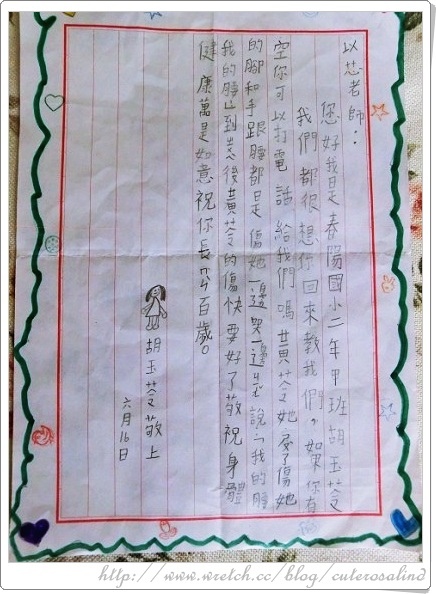 以芯老師：
您好我是春陽國小二年甲班胡玉苓
我們都很想你回來教我們，如果你有
空你可以打電話給我們嗎黃苓她受了傷她
的腳和手跟腫都是傷她一邊哭一邊說：「我的腫
我的腫」到後黃苓的傷快要好了敬祝身體
健康萬是如意祝你長命百歲。
胡玉苓敬上
六月16日
http://www.wretch.cc/blog/cuterosalind